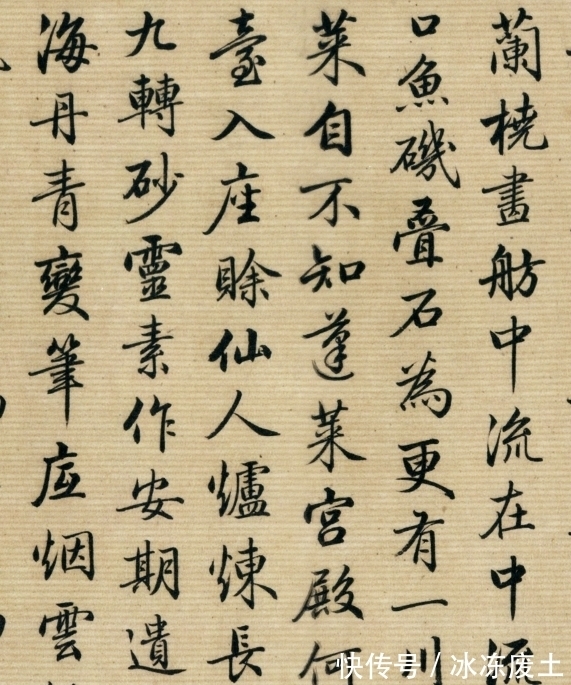 蘭橈畫舫中流在中
口魚磯疊石為更有一
萊自不知蓬萊宮殿何
臺入座賒仙人爐煉長
九轉砂靈素作安期遺
海丹青變筆底烟雲
快传号 / 冰冻废土